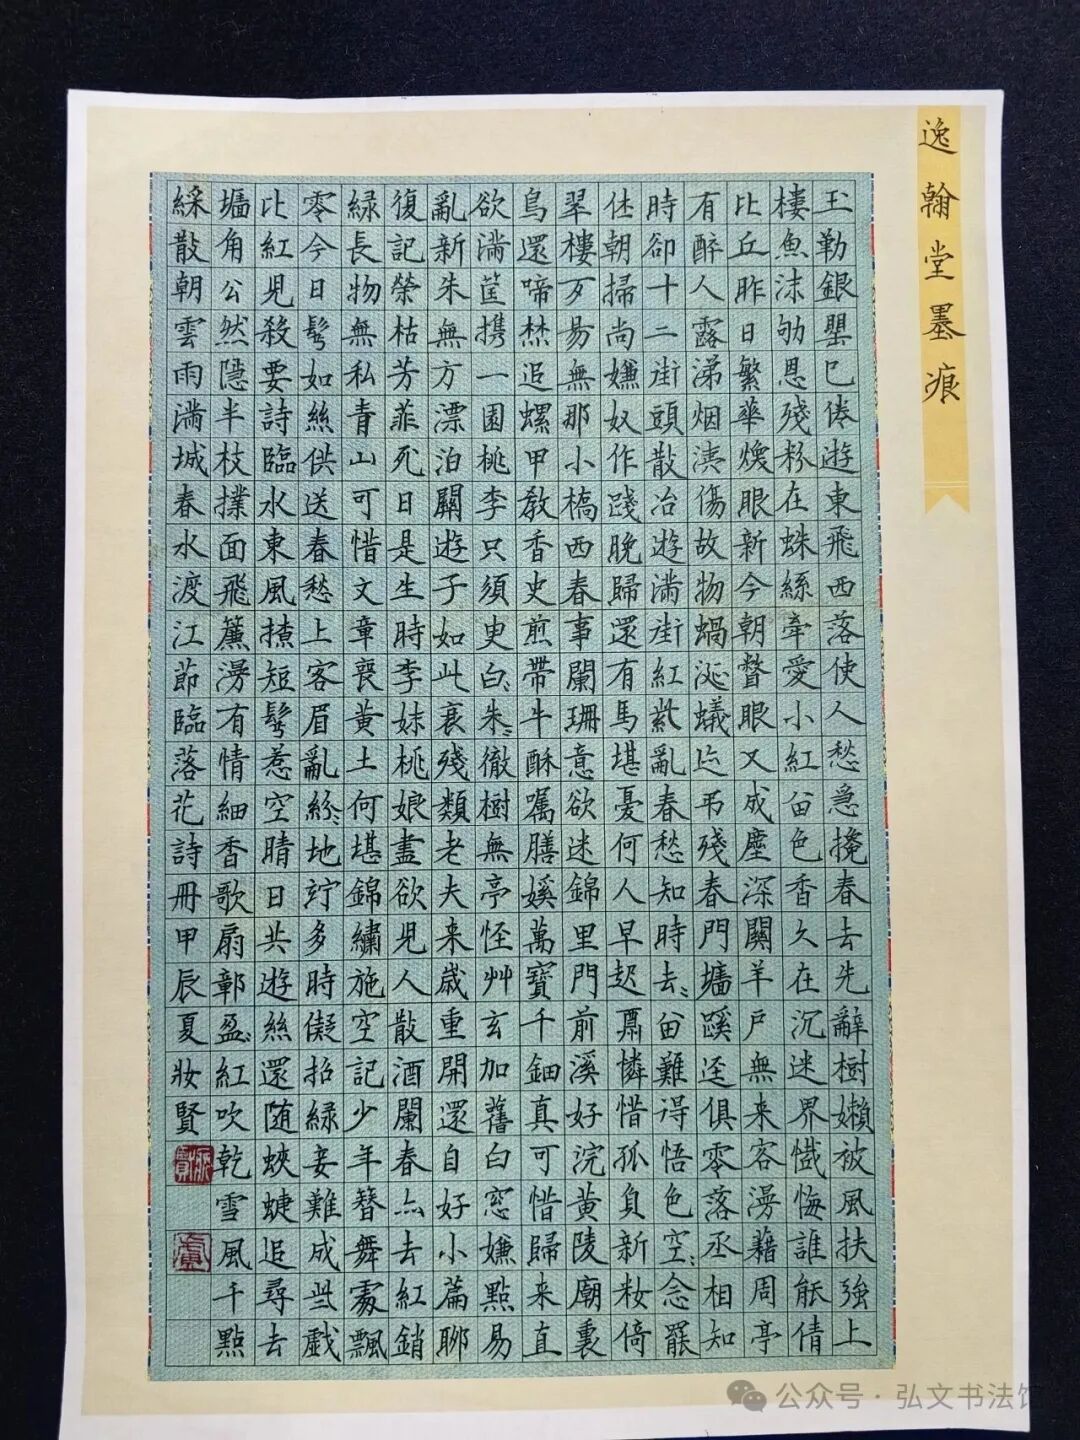 逸翰堂墨痕
玉勒銀罌已倦遊東飛西落使人愁急攙春去先辭樹嬾被風扶強上
樓魚沫劬恩殘粉在蛛絲牽愛小紅畄色香久在沉迷界懺悔誰能倩
比丘昨日繁華煥眼新今朝瞥眼又成塵深關羊户無来客漫藉周亭
有醉人露涕烟洟傷故物蝸涎蟻迹弔殘春門墻蹊逕俱零落丞相知
時卻十二街頭散冶遊滿街紅紫亂春愁知時去〻畄難得悟色空〻念罷
休朝掃尚嫌奴作踐晚歸還有馬堪憂何人早起肅憐惜孤負新妝倚
翠樓歹易無那小橋西春事闌珊意欲迷錦里門前溪好浣黄陵廟裏
鳥還啼焚追螺甲教香史煎帶牛酥囑膳媄萬寶千鈿真可惜歸来直
欲滿筐携一園桃李只須臾白〻朱〻徹樹無亭怪艸玄加舊白窓嫌點易
亂新朱無方漂泊關遊子如此衰殘類老夫来歲重開還自好小篇聊
復記榮枯芳菲死日是生時李妹桃娘盡欲兒人散酒闌春亦去紅銷
緑長物無私青山可惜文章喪黄土何堪錦繡施空記少年簪舞處飄
零今日鬢如絲供送春愁上客眉亂紛〻地竚多時儗招緑妾難成些戲
比紅兒殺要詩臨水東風撩短鬢惹空晴日共遊絲還随蛺蜨追尋去
墻角公然隱半枝撲面飛簾漫有情細香歌扇鄣盈〻紅吹乾雪風千點
綵散朝雲雨滿城春水渡江節臨落花詩冊甲辰夏妝賢
公众号·弘文书法馆